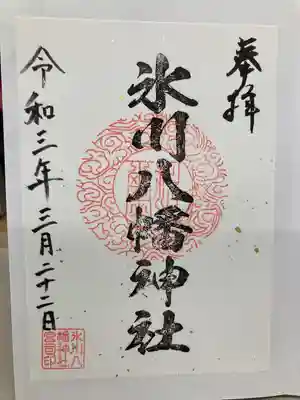 奉拝
氷川八幡神社
令和三年三月二十二日
氷川八
幡神社
宮司印